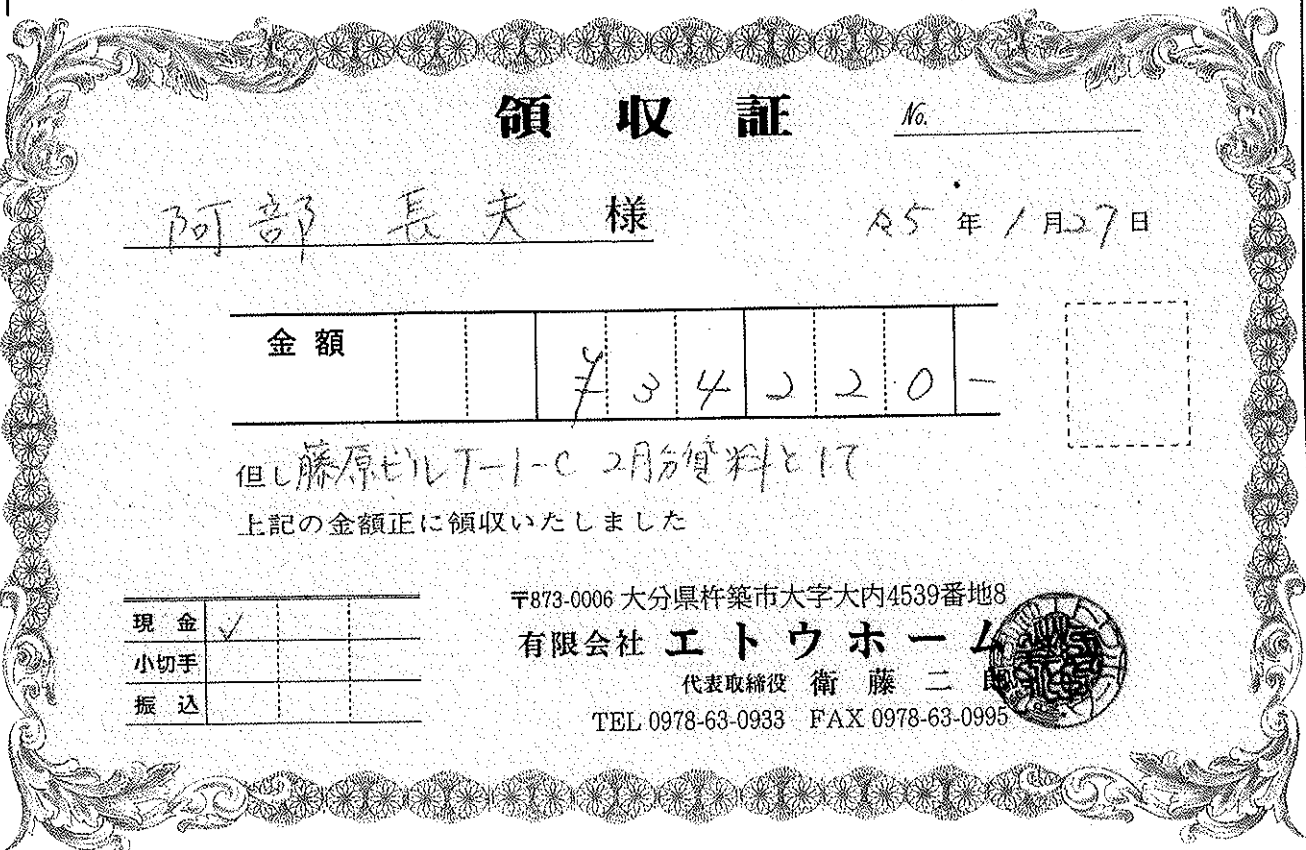 領収証 No.
阿部 長夫 様 令5年1月27日
金額 ¥34220-
但し藤原ビルT-1-C 2月分賃料として
上記の金額正に領収いたしました
〒873-0006 大分県杵築市大字大内4539番地8
現金 ✓
有限会社 エトウホーム
小切手
代表取締役 衛藤二郎
振込
TEL 0978-63-0933 FAX 0978-63-0995